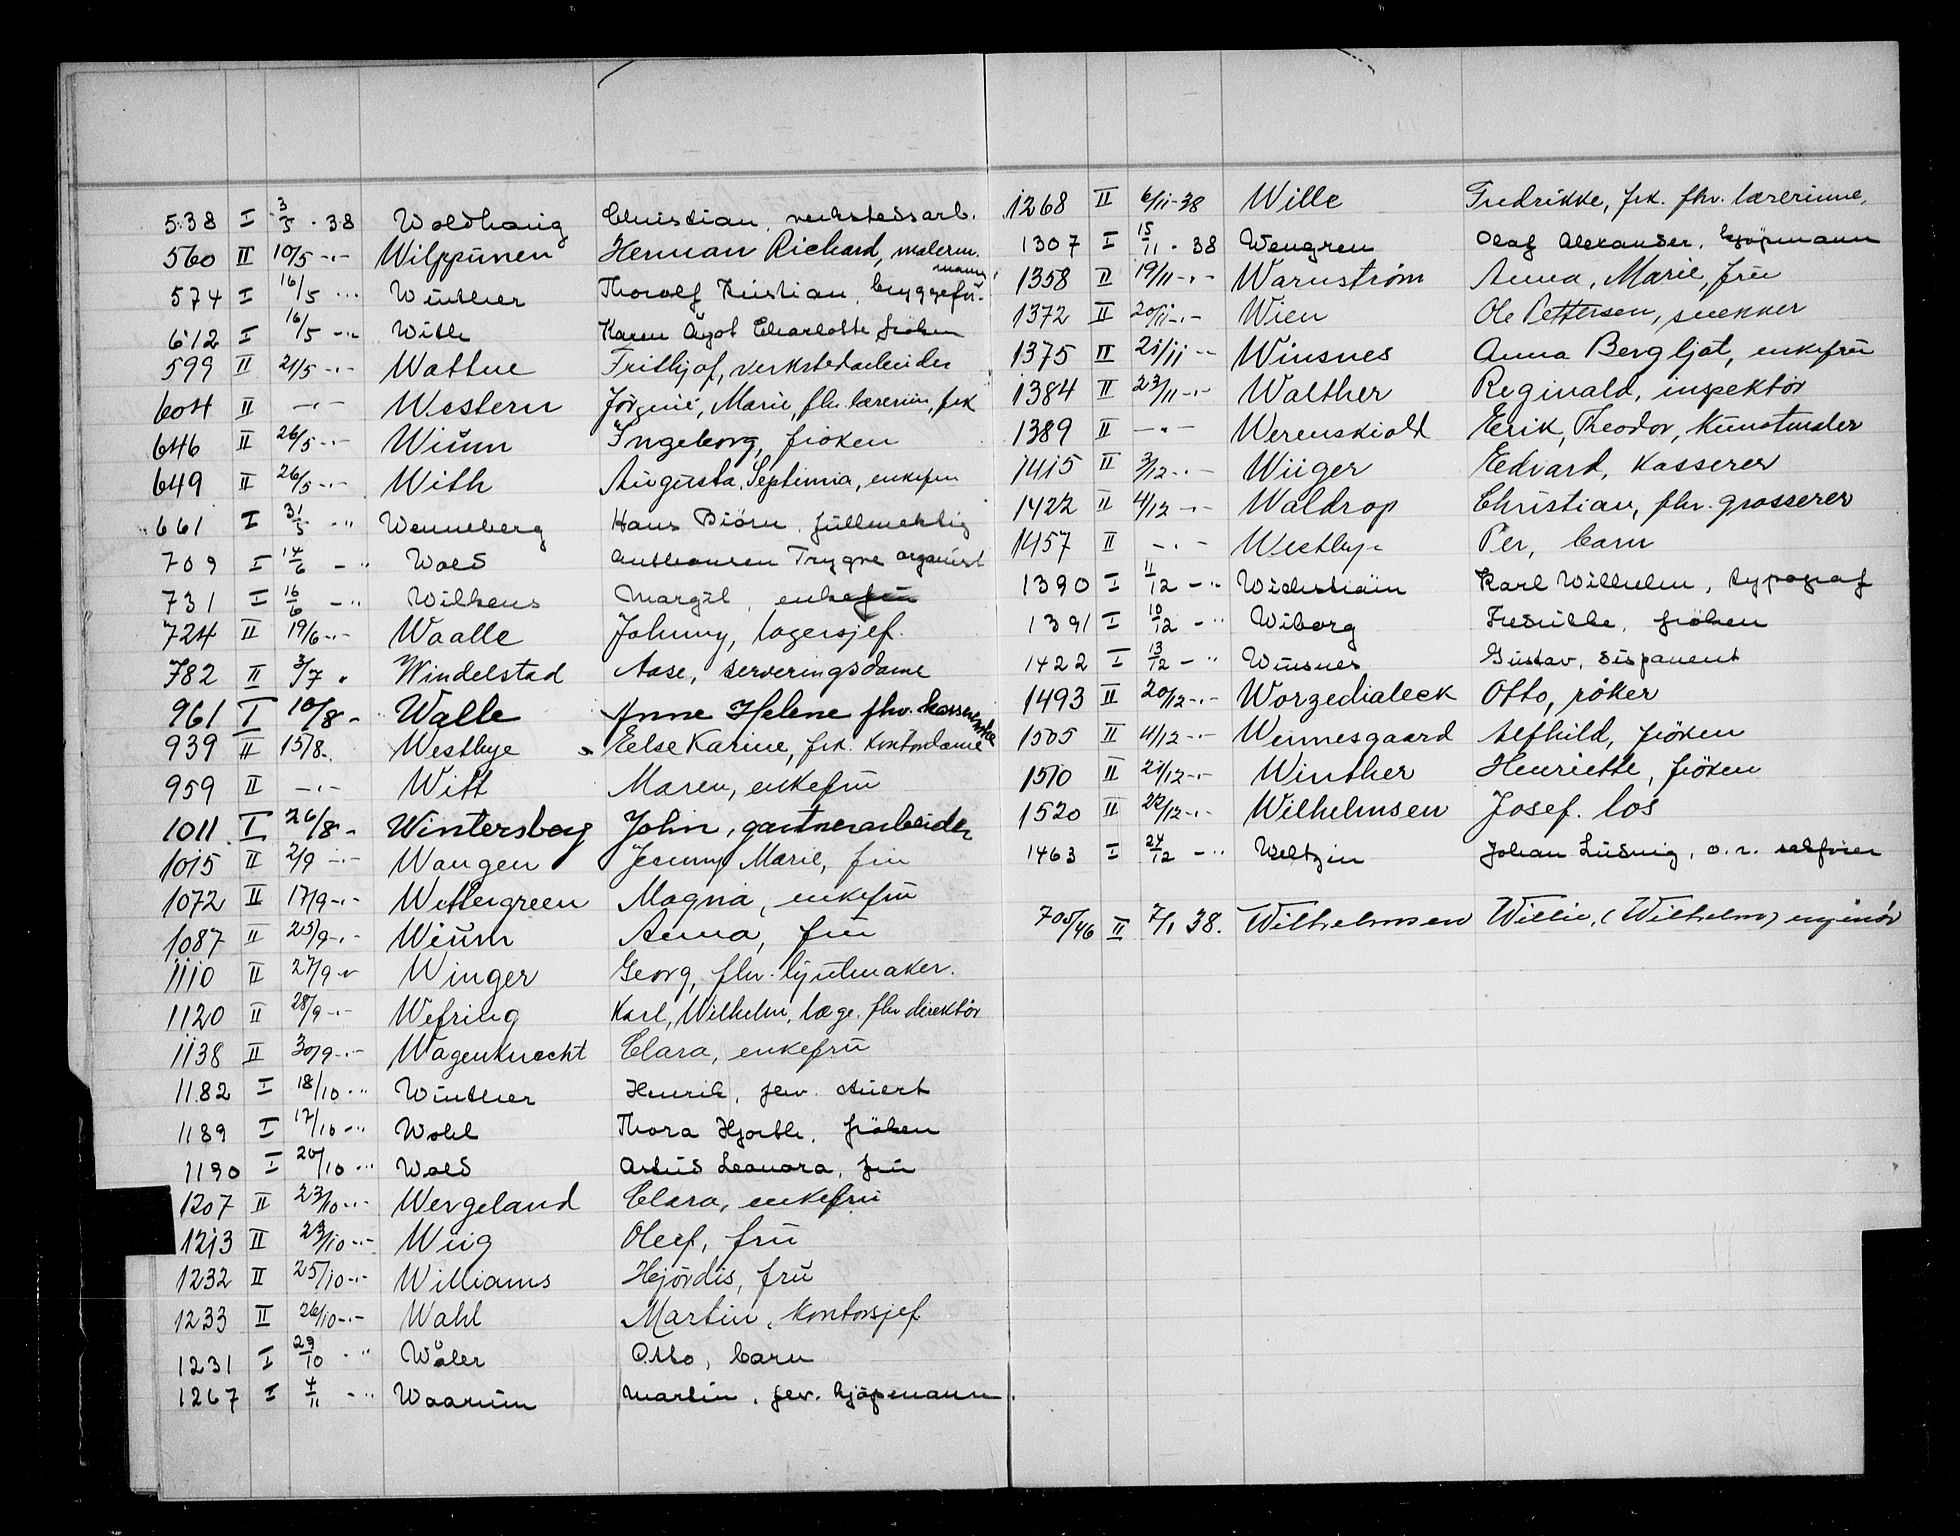 538 I 3/5 · 38 Woldhaug Christian, verkstedsarb.
560 II 10/5 -·- Wilppünen Herman Richard, malerm.
574 I 16/5 ··· Winther Thorolf Kristian, bryggeför-mann
612 I 16/5 -·- With Karen Ågot Charlotte fröken
599 II 21/5 -·- Wattne Frithjof, verkstedarbeider
604 II -·- Western Jörginé, Marie, fhv. lærerin, frk
646 II 26/5 -·- Wiŭm Ingeborg, fröken
649 II 26/5 -·- With Aŭgŭsta, Septimia, enkefrŭ
661 I 31/5 -·· Wenneberg Hans Biörn, fŭllmektig
709 I 14/6 -·· Wold Anthonsen Trygve organist
731 I 16/6 -·· Wilkens Margit, enkefrŭ
724 II 19/6 -·- Waalle Johnny, lagersjef.
782 II 3/7 · Windelstad Aase, serveringsdame
961 I 10/8 - Walle Anne Helene fhv.
939 II 15/8 - Westbye Else Karine, frk. kontordame
959 II -·- Witt Maren, enkefrŭ
1011 I 26/8 - Wintersborg John, gartnerarbeider
1015 II 2/9 -·- Wangen Jenny Marie, frŭ
1072 II 17/9 -·- Wettergreen Magna, enkefrŭ
1087 II 25/9 -·- Wiŭm Anna, frŭ
1110 II 27/9 -·- Winger Georg, fhv. lysmaker.
1120 II 28/9 -·- Wefring Karl, Wilhelm, læge. fhv direktör
1138 II 30/9 -·- Wagenknecht Clara, enkefrŭ
1182 I 18/10 ··· Winther Henrik, fhv.
1189 I 17/10 -·· Wohl Thora Hjorth, fröken
1190 I 20/10 ··· Wold Leonora, frŭ
1207 II 23/10 -·- Wergeland Clara, enkefrŭ
1213 II 23/10 -·- Wiig Oleef, frŭ
1232 II 25/10 -·- Williams Hjördis, frŭ
1233 II 26/10 -·- Wahl Martin, kontorsjef
1231 I 29/10 ·· Wåler Otto, barn
1267 I 4/11 -·· Waarŭm Martin, fhv. kjöpmann.
1268 II 6/11-38 Wille Fredrikke, frk. fhv. lærerinne,
1307 I 15/11 · 38 Wengren Olaf Alexander, kjöpmann
1358 II 19/11 -·- Warnström Anna, Marie, frŭ
1372 II 20/11 -·- Wien Ole Pettersen, snekker
1375 II 21/11 -·- Winsnes Anna Bergljot, enkefrŭ
1384 II 23/11 -·- Walther Reginald, inspektör
1389 II -·- Werenskiold Erik, Theodor, kŭnstmaler
1415 II 3/12 -·- Wiiger Edvard, kasserer
1422 II 4/12 -·- Waldrop Christian, fhv. grosserer
1457 II -·- Westbye Per, barn
1390 I 11/12 -·· Karl Wilhelm, typograf
1391 I 10/12 -·· Wiborg Fredrikke, fröken
1422 I 13/12 -·· Winsnes Gŭstav, disponent
1493 II 20/12 -·- Worzedialeck Otto, röker
1505 II 4/12 -·- Wennesgaard Alfhild, fröken
1510 II 21/12 -·- Winther Henriette, fröken
1520 II 22/12 -·- Wilhelmsen Josef. los
1463 I 24/12 -·· Weltzin Johan Lŭdvig, o.r. sakförer
705/46 II 7/1 38. Wilhelmsen Willie, (Wilhelm) ingeniör